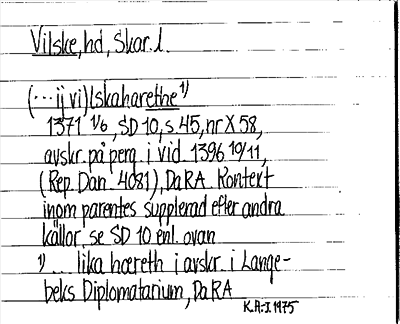 Vilske, hd, Skar. l.
(... ij vi)lskaharethe 1)
1371 1/6, SD 10, s. 45, nr X 58,
avskr. på perg. i vid. 1396 19/11,
(Rep. Dan. 4081), DaRA. Kontext
inom parentes supplerad efter andra
källor. se SD 10 enl. ovan
1) ... lika hæreth i avskr. i Lange-
beks Diplomatarium, DaRA
K.A:-I. 1975